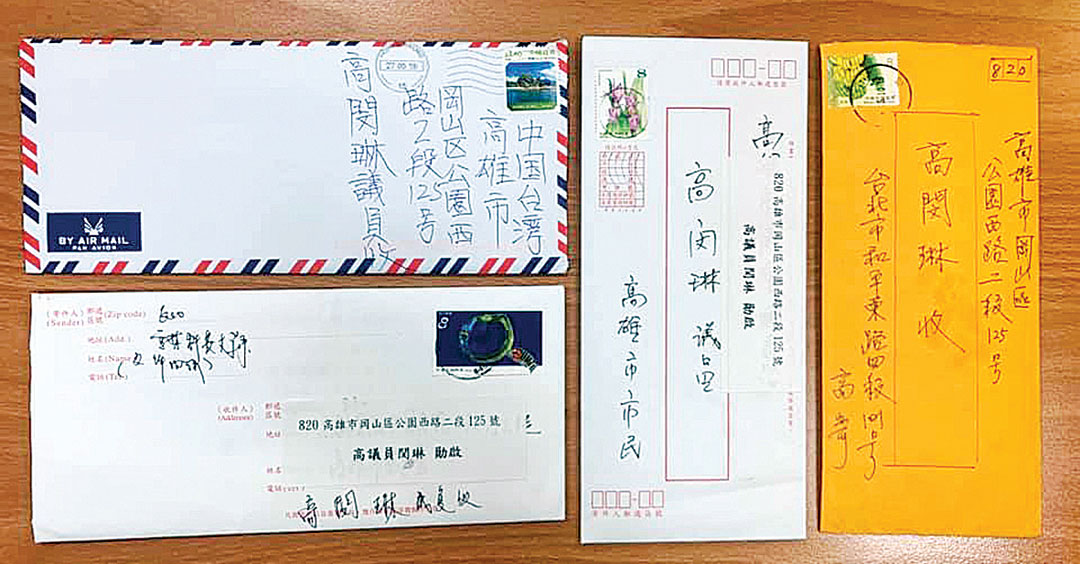 中国台湾
高雄市
岡山区公園西
路乙段125号
高閔琳議員收
27 09 18
BY AIR MAIL
PAR AVION
8
高
820 高雄市岡山區公園西路二段 125 號
高議員閔琳 勛啟
高閔琳 議員
高雄市市民
寄件人郵遞區號
8
820
高雄市岡山區
公園西路二段125号
高閔琳 收
台北市和平東路四段
8
(寄件人)
(Sender)
郵遞
區號
(Zip code)
地址(Add.)
姓名(Name)
電話(Tel.)
(收件人)
(Addressee)
郵遞
區號
地址
820 高雄市岡山區公園西路二段 125 號
高議員閔琳 勛啟
姓名
電話
高閔琳